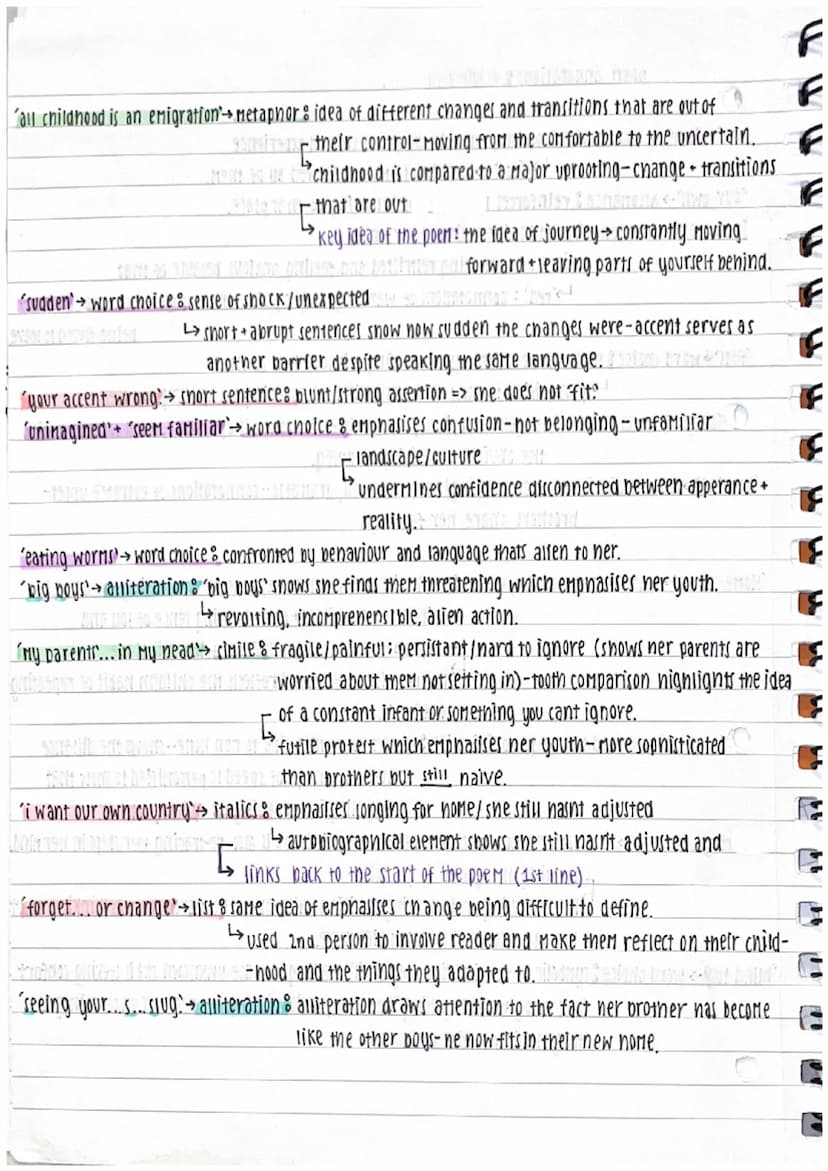 'all childhood is an emigration' → metaphor: idea of different changes and transitions that are out of
their control - moving from the comfortable to the uncertain.
↳ childhood is compared to a major uprooting - change + transitions
that are out
↳ key idea of the poem: the idea of journey → constantly moving
forward + leaving parts of yourself behind.
'sudden' → word choice: sense of shock/unexpected
↳ short + abrupt sentences show how sudden the changes were - accent serves as
another barrier despite speaking the same language.
'your accent wrong.' → short sentence: blunt/strong assertion => she does not 'fit.'
'unimagined' + 'seem familiar' → word choice: emphasises confusion - not belonging - unfamiliar
landscape/culture
↳ undermines confidence disconnected between apperance +
reality.
'eating worms' → word choice: confronted by behaviour and language thats alien to her.
'big boys' → alliteration: 'big boys' shows she finds them threatening which emphasises her youth.
↳ revolting, incomprehensible, alien action.
'my parents'...in my head' → simile: fragile/painful; persistant/hard to ignore (shows her parents are
worried about them not setting in) - tooth comparison highlights the idea
of a constant infant or something you cant ignore.
↳ futile protest which emphasises her youth - more sophisticated
than brothers but still naive.
'i want our own country' → italics: emphasises longing for home/she still hasnt adjusted
↳ autobiographical element shows she still hasn't adjusted and
↳ links back to the start of the poem (1st line)
'forget... or change' → list: same idea of emphasises change being difficult to define.
↳ used 2nd person to involve reader and make them reflect on their child-
-hood and the things they adapted to.
'seeing your...s...slug.' → alliteration: alliteration draws attention to the fact her brother has become
like the other boys - he now fits in their new home.